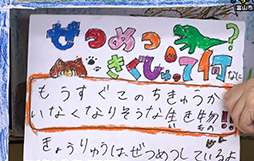 富山市
ぜつめつ?
きぐしゅって何なに
もうすぐこのちきゅうか
いなくなりそうな生き生物もの!!
きょうりゅうはぜつめつしているよ